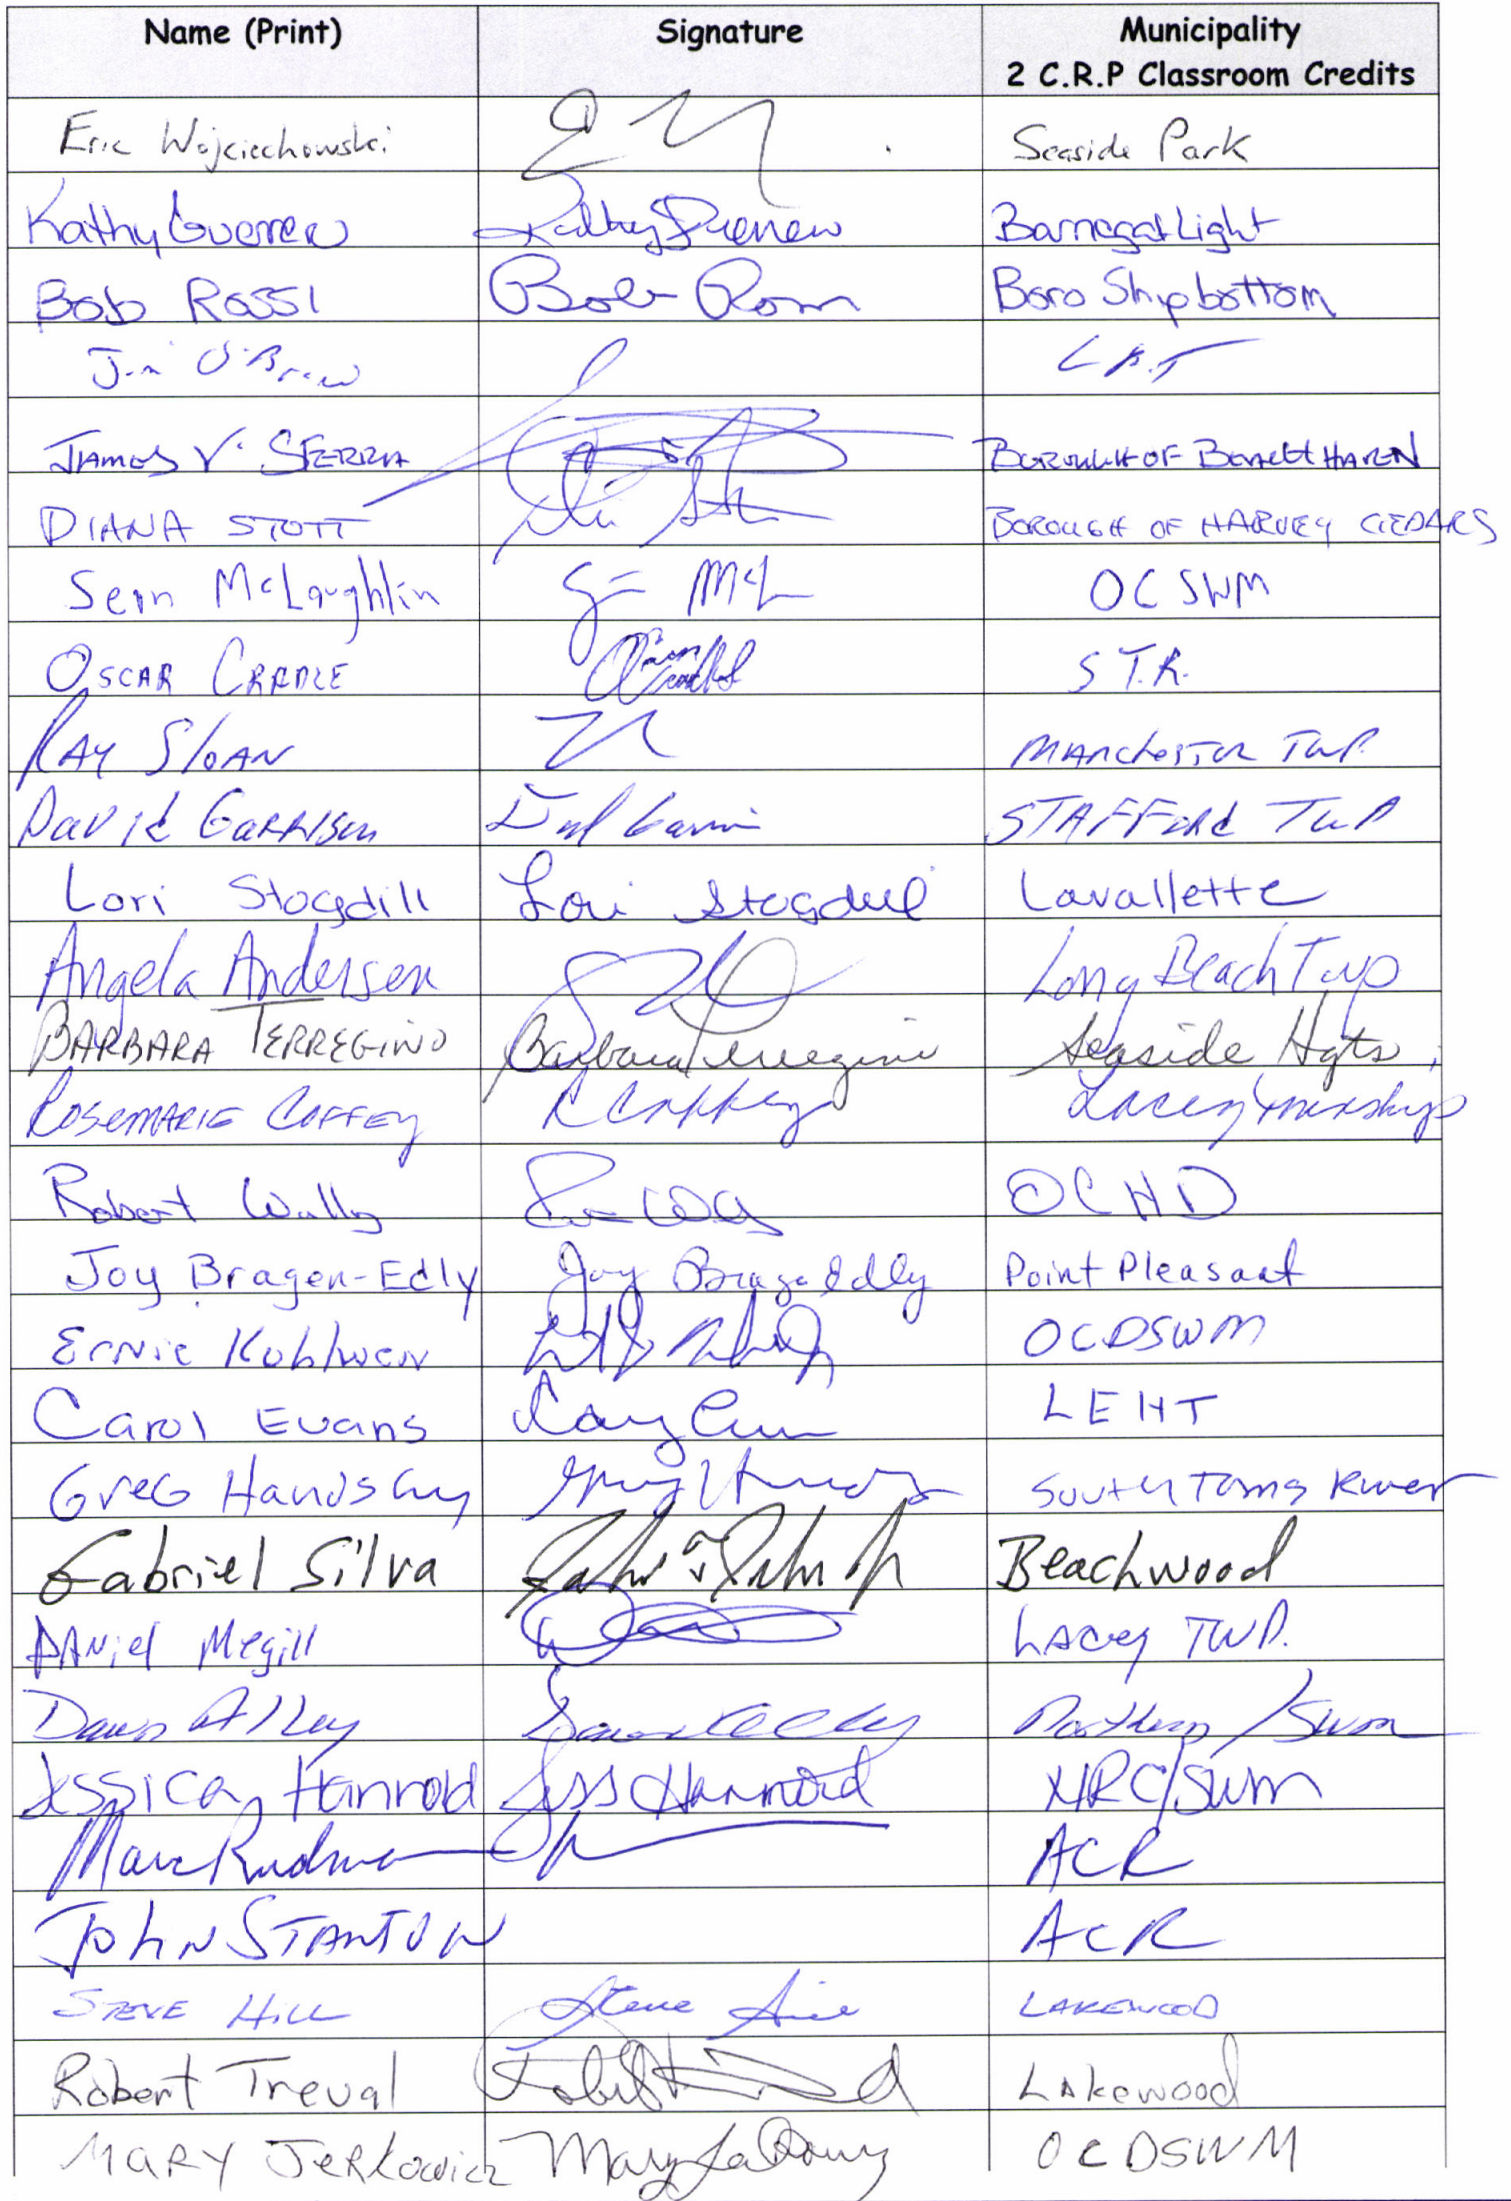 Name (Print) Signature Municipality
2 C.R.P Classroom Credits
Eric Wojciechowski Seaside Park
Kathy Guerrero Barnegat Light
Bob Rossi Bob Rossi Boro Shipbottom
Jim O'Brien L.B.T
James V. Sferra Borough of Beach Haven
DIANA STOTT BOROUGH OF HARVEY CEDARS
Sean McLaughlin OCSWM
OSCAR CRADLE S T.R.
RAY SloAN MANchester TwP.
David Garrison STAFFord TwP
Lori Stogdill Lori Stogdill Lavallette
Angela Andersen Long Beach Twp
BARBARA TERREGINO Barbara Terregino Seaside Hgts.
ROSEMARIE COFFEY R Coffey Lacey Township
Robert Wally OCHD
Joy Bragen-Edly Joy Bragen Edly Point Pleasant
Ernie OCDSWM
Carol Evans LEHT
Greg South Toms River
Gabriel Silva Beachwood
DANiel Megill LAcey TWP.
Dawn Alley /SWM
Jessica Hamrod SWM
Marc Rudman ACR
JohN STANTON ACR
STEVE HILL Steve Hill LAKEWOOD
Robert Treval LAkewood
MARY JeRkowicz OCDSWM